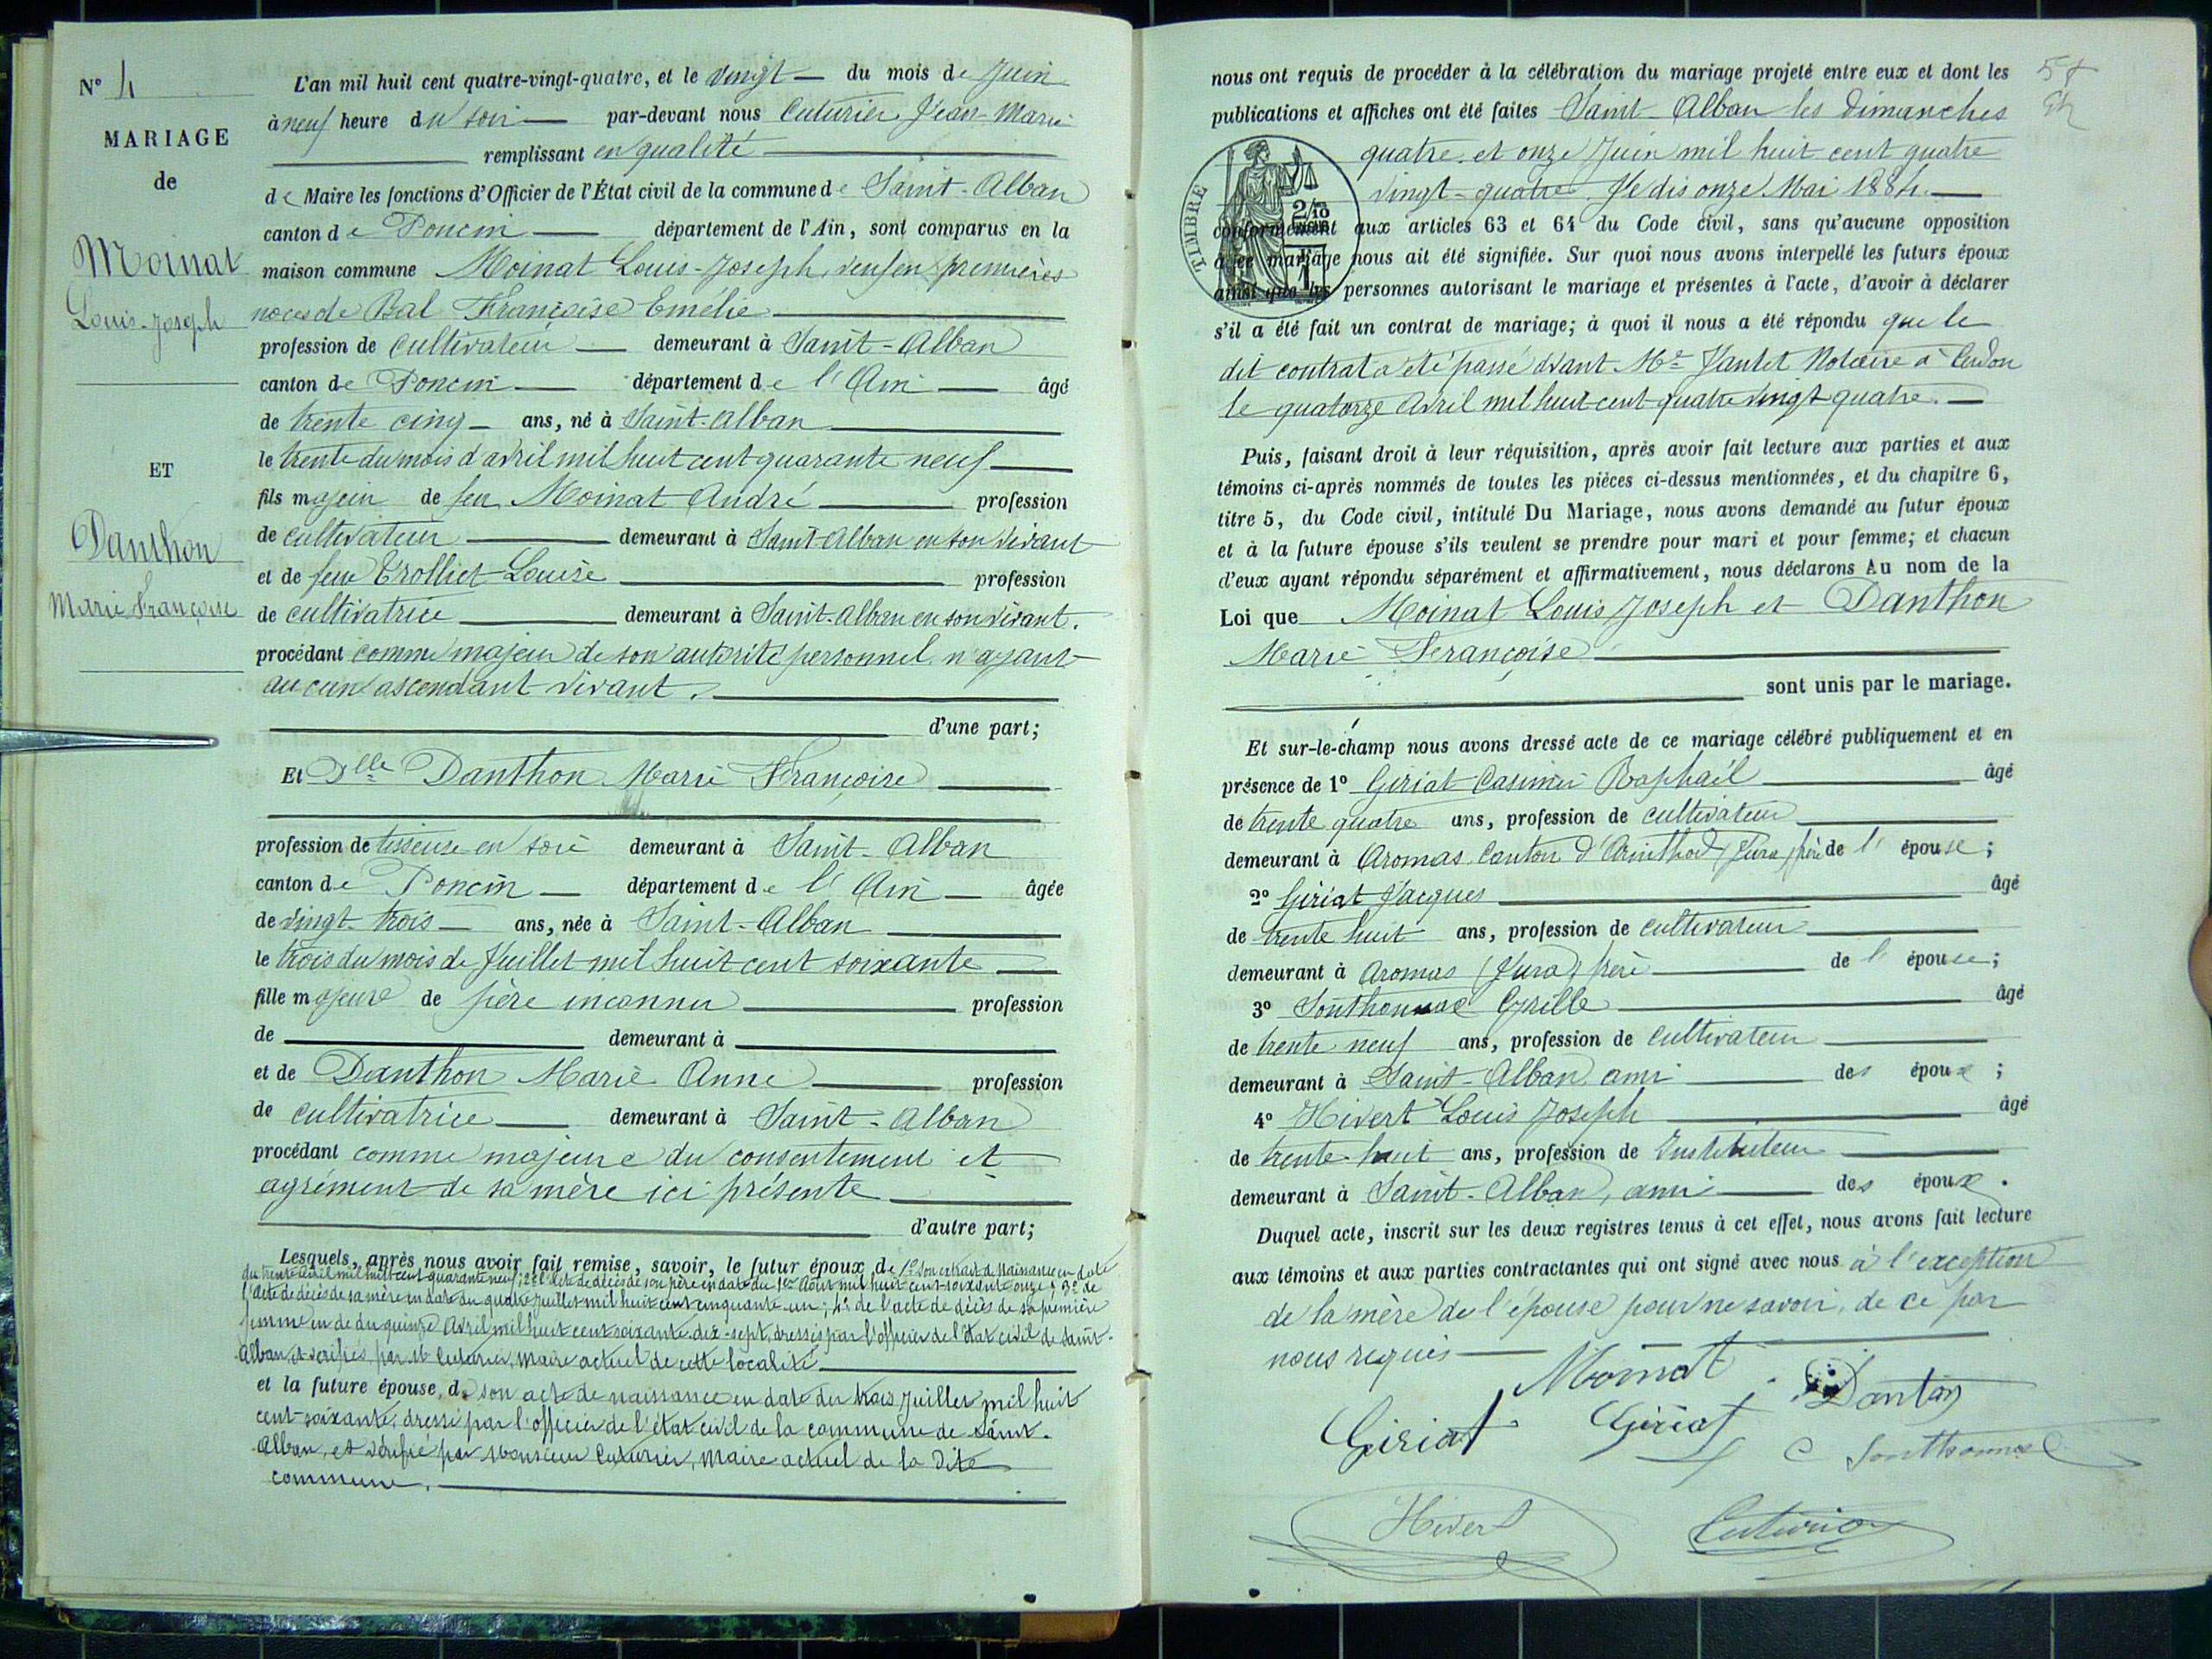 N° 4
MARIAGE
de
Moinat
Louis-Joseph
ET
Danthon
Marie Françoise
L'an mil huit cent quatre-vingt-quatre, et le vingt du mois de Juin
à neuf heure du soir par-devant nous Cuturier Jean-Marie
remplissant en qualité
de Maire les fonctions d'Officier de l'État civil de la commune de Saint-Alban
canton de Poncin département de l'Ain, sont comparus en la
maison commune Moinat Louis-Joseph, veuf en premières
noces de Bal Françoise Emélie
profession de cultivateur demeurant à Saint-Alban
canton de Poncin département de l'Ain âgé
de trente cinq ans, né à Saint-Alban
le trente du mois d'avril mil huit cent quarante neuf
fils majeur de feu Moinat André profession
de cultivateur demeurant à Saint-Alban en son vivant
et de feue Trolliet Louise profession
de cultivatrice demeurant à Saint-Alban en son vivant.
procédant comme majeur de son autorité personnel n'ayant
aucun ascendant vivant.
d'une part;
Et Dlle Danthon Marie Françoise
profession de tisseuse en soie demeurant à Saint-Alban
canton de Poncin département de l'Ain âgée
de vingt-trois ans, née à Saint-Alban
le trois du mois de Juillet mil huit cent soixante
fille majeure de père inconnu profession
de demeurant à
et de Danthon Marie Anne profession
de cultivatrice demeurant à Saint-Alban
procédant comme majeure du consentement et
agrément de sa mère ici présente
d'autre part;
Lesquels, après nous avoir fait remise, savoir, le futur époux, de 1° son extrait de naissance en date
du trente avril mil huit cent quarante neuf; 2° l'acte de décès de son père en date du 1er Août mil huit cent soixante onze; 3° de
l'acte de décès de sa mère en date du quatre juillet mil huit cent cinquante un; 4° de l'acte de décès de sa première
femme en de du quinze Avril mil huit cent soixante dix-sept, dressés par l'officier de l'état civil de Saint-
Alban, et vérifiés par M. Cuturier, maire actuel de cette localité
et la future épouse, de son acte de naissance en date du trois Juillet mil huit
cent-soixante, dressé par l'officier de l'état civil de la commune de Saint-
Alban, et vérifié par Monsieur Cuturier, Maire actuel de la dite
commune.
58
nous ont requis de procéder à la célébration du mariage projeté entre eux et dont les
publications et affiches ont été faites Saint-Alban les Dimanches
quatre et onze Juin mil huit cent quatre
vingt-quatre. Je dis onze Mai 1884.
TIMBRE
2/10
conformément aux articles 63 et 64 du Code civil, sans qu'aucune opposition
à ce mariage nous ait été signifiée. Sur quoi nous avons interpellé les futurs époux
ainsi que les personnes autorisant le mariage et présentes à l'acte, d'avoir à déclarer
s'il a été fait un contrat de mariage; à quoi il nous a été répondu que le
dit contrat a été passé devant Me Jantet Notaire à Cerdon
le quatorze Avril mil huit cent quatre vingt quatre.
Puis, faisant droit à leur réquisition, après avoir fait lecture aux parties et aux
témoins ci-après nommés de toutes les pièces ci-dessus mentionnées, et du chapitre 6,
titre 5, du Code civil, intitulé Du Mariage, nous avons demandé au futur époux
et à la future épouse s'ils veulent se prendre pour mari et pour femme; et chacun
d'eux ayant répondu séparément et affirmativement, nous déclarons Au nom de la
Loi que Moinat Louis Joseph et Danthon
Marie Françoise
sont unis par le mariage.
Et sur-le-champ nous avons dressé acte de ce mariage célébré publiquement et en
présence de 1° Giriat Casimir Raphaël âgé
de trente quatre ans, profession de cultivateur
demeurant à Aromas, Canton d'Arinthod (Jura) frère de l'épouse;
2° Giriat Jacques âgé
de trente huit ans, profession de cultivateur
demeurant à Aromas (Jura) frère de l'épouse;
3° Southonnax Cyrille âgé
de trente neuf ans, profession de cultivateur
demeurant à Saint-Alban ami des époux;
4° Hivert Louis Joseph âgé
de trente-huit ans, profession de Instituteur
demeurant à Saint-Alban, ami des époux.
Duquel acte, inscrit sur les deux registres tenus à cet effet, nous avons fait lecture
aux témoins et aux parties contractantes qui ont signé avec nous à l'exception
de la mère de l'épouse pour ne savoir, de ce par
nous requis
Moinat Danton
Giriat Giriat C Southonnax
Hivert Cuturier